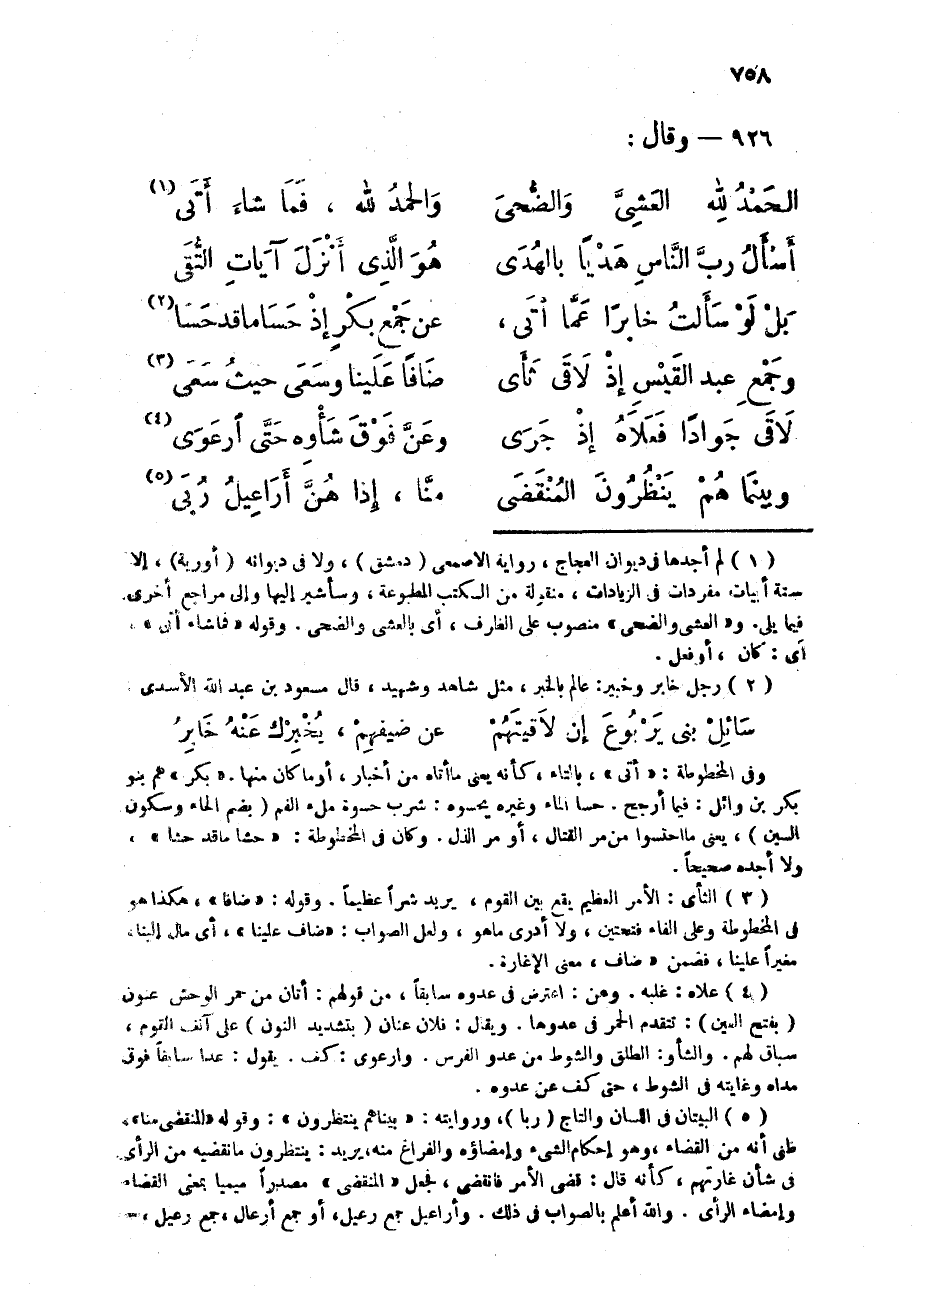 ٧٥٨
٩٢٦ — وقال :
الحَمْدُ لِلهِ العَشِىَّ وَالضُّحَىَ وَالحمدُ لله ، فَمَا شاءَ أَتَى (١)
أَسْأَلُ ربَّ النَّاسِ هَدْيًا بالهُدَى هُوَ الَّذِى أَنْزَلَ آيَاتِ التُّقَى
بَلْ لَوْ سَأَلتُ خابرًا عَمَّا أتَى ، عن جَمْعِ بَكْرٍ إذْ حَسَا ما قد حَسَا (٢)
وجَمْعِ عبد القَيْسِ إذْ لَاقَى ثَأَى ضَافًا عَلَينا وسَعَى حيثُ سَعَى (٣)
لَاقَى جَوادًا فَعَلَاهُ إذْ جَرَى وعَنَّ فَوْقَ شَأْوِه حَتَّى أرعَوَى (٤)
وبينَمَا هُمْ يَنْظُرُونَ المُنْقَضَى منَّا ، إِذا هُنَّ أَرَاعِيلُ رُبَى (٥)
( ١ ) لم أجدها فى ديوان العجاج ، رواية الأصمعى ( دمشق ) ، ولا فى ديوانه ( أوربة ) ، إلا
ستة أبيات مفردات فى الزيادات ، منقولة من الكتب المطبوعة ، وسأشير إليها وإلى مراجع أخرى
فيما يلى. و« العشى والضحى » منصوب على الظرف ، أى بالعشى والضحى . وقوله « فماشاء أتى » ،
أى : كان ، أو فعل .
( ٢ ) رجل خابر وخبير: عالم بالخبر ، مثل شاهد وشهيد ، قال مسعود بن عبد الله الأسدى :
سَائِلْ بنى يَرْبُوعَ إن لاَقيتَهُمْ عن ضيفهِمْ ، يُخْبِرْك عَنْهُ خَابِرُ
وفى المخطوطة : « أتى » ، بالتاء ، كأنه يعنى ما أتاه من أخبار ، أو ما كان منها . « بكر » هم بنو
بكر بن وائل : فيما أرجح . حسا الماء وغيره يحسوه : شرب حسوة ملء الفم ( بضم الحاء وسكون
السين ) ، يعنى ما احتسوا من مر القتال ، أو مر الذل . وكان فى المخطوطة : « حشا ما قد حشا » ،
ولا أجده صحيحاً .
( ٣ ) الثأى : الأمر العظيم يقع بين القوم ، يريد شراً عظيماً . وقوله : « ضافا » ، هكذا هو
فى المخطوطة وعلى الفاء فتحتين ، ولا أدرى ماهو ، ولعل الصواب : «ضاف علينا » ، أى مال إلينا
مغيراً علينا ، فضمن « ضاف ، معنى الإغارة .
( ٤ ) علاه : غلبه . وعن : اعترض فى عدوه سابقاً ، من قولهم : أتان من حمر الوحش عنون
( بفتح العين ) : تتقدم الحمر فى عدوها . ويقال : فلان عنان ( بتشديد النون ) على آنف القوم ،
سباق لهم . والشأو: الطلق والشوط من عدو الفرس . وارعوى : كف . يقول : عدا سابقاً فوق
مداه وغايته فى الشوط ، حتى كف عن عدوه .
( ٥ ) البيتان فى اللسان والتاج ( ربا )، وروايته : « بيناهم ينتظرون » : وقوله «المنقضى منا»،
ظنى أنه من القضاء ،وهو إحكام الشىء وإمضاؤه والفراغ منه،يريد : ينتظرون مانقضيه من الرأى
فى شأن غارتهم ، كأنه قال : قضى الأمر فانقضى ، فجعل « المنقضى » مصدراً ميميا بمعنى القضاء
وإمضاء الرأى . والله أعلم بالصواب فى ذلك . وأراعيل جمع رعيل، أو جمع أرعال ،جمع رعيل ،